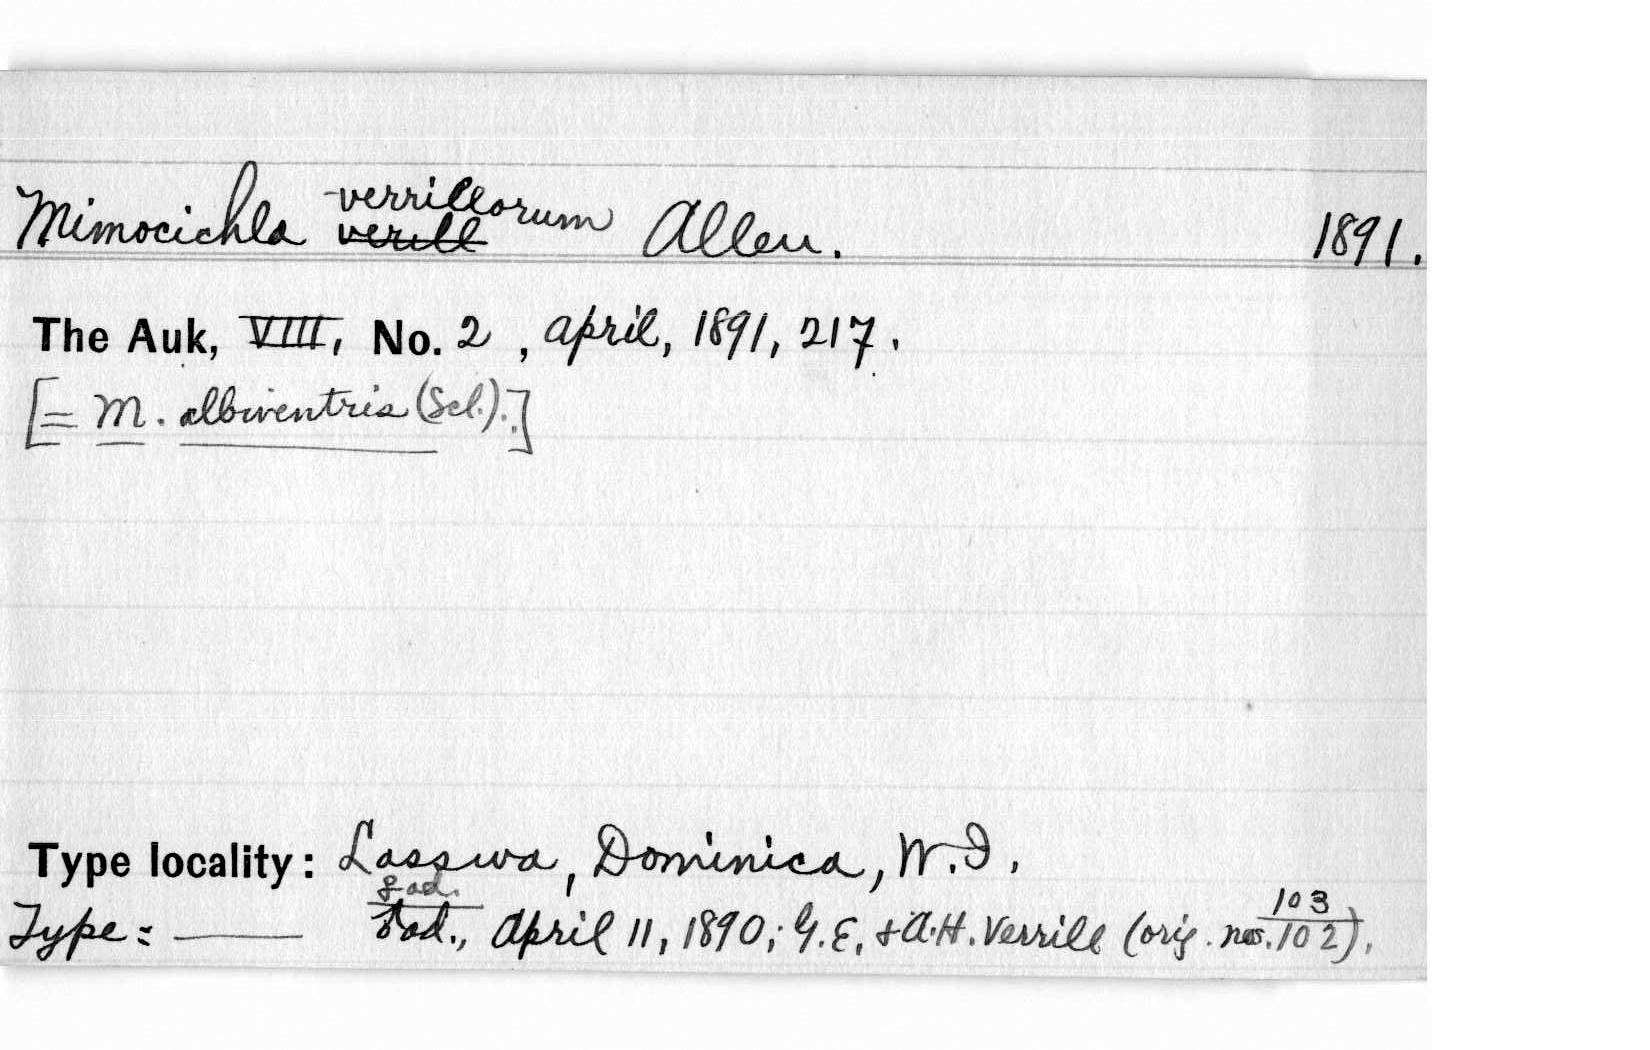 Mimocichla verrillorum Allen. 1891.
verill
The Auk, VIII, No. 2, April, 1891, 217.
[= M. albiventris (Scl.).]
Type locality: Lasswa, Dominica, W.I.
♀ ad. 103
Type: — ♂ ad., April 11, 1890; G.E. + A.H. Verrill (orig. nos. 102).